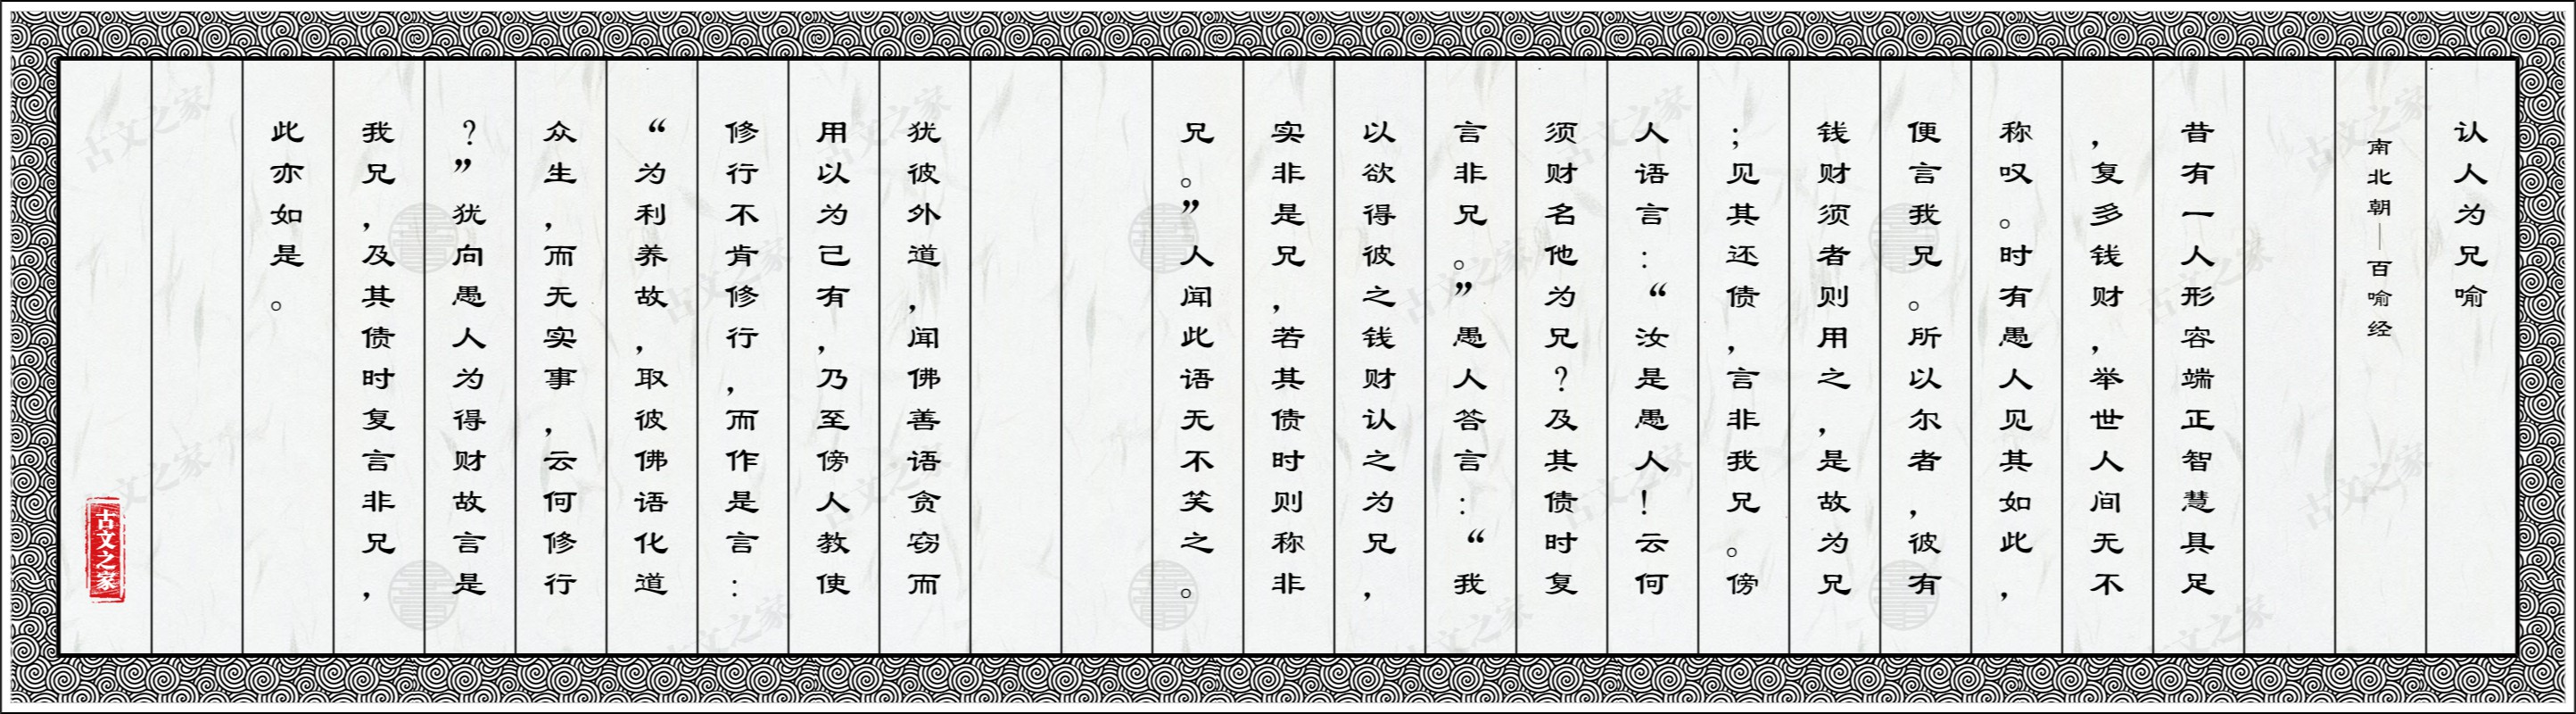 认人为兄喻
南北朝—百喻经
昔有一人形容端正智慧具足
，复多钱财，举世人间无不
称叹。时有愚人见其如此，
便言我兄。所以尔者，彼有
钱财须者则用之，是故为兄
；见其还债，言非我兄。傍
人语言：“汝是愚人！云何
须财名他为兄？及其债时复
言非兄。”愚人答言：“我
以欲得彼之钱财认之为兄，
实非是兄，若其债时则称非
兄。”人闻此语无不笑之。
犹彼外道，闻佛善语贪窃而
用以为己有，乃至傍人教使
修行不肯修行，而作是言：
“为利养故，取彼佛语化道
众生，而无实事，云何修行
？”犹向愚人为得财故言是
我兄，及其债时复言非兄，
此亦如是。
古文之家